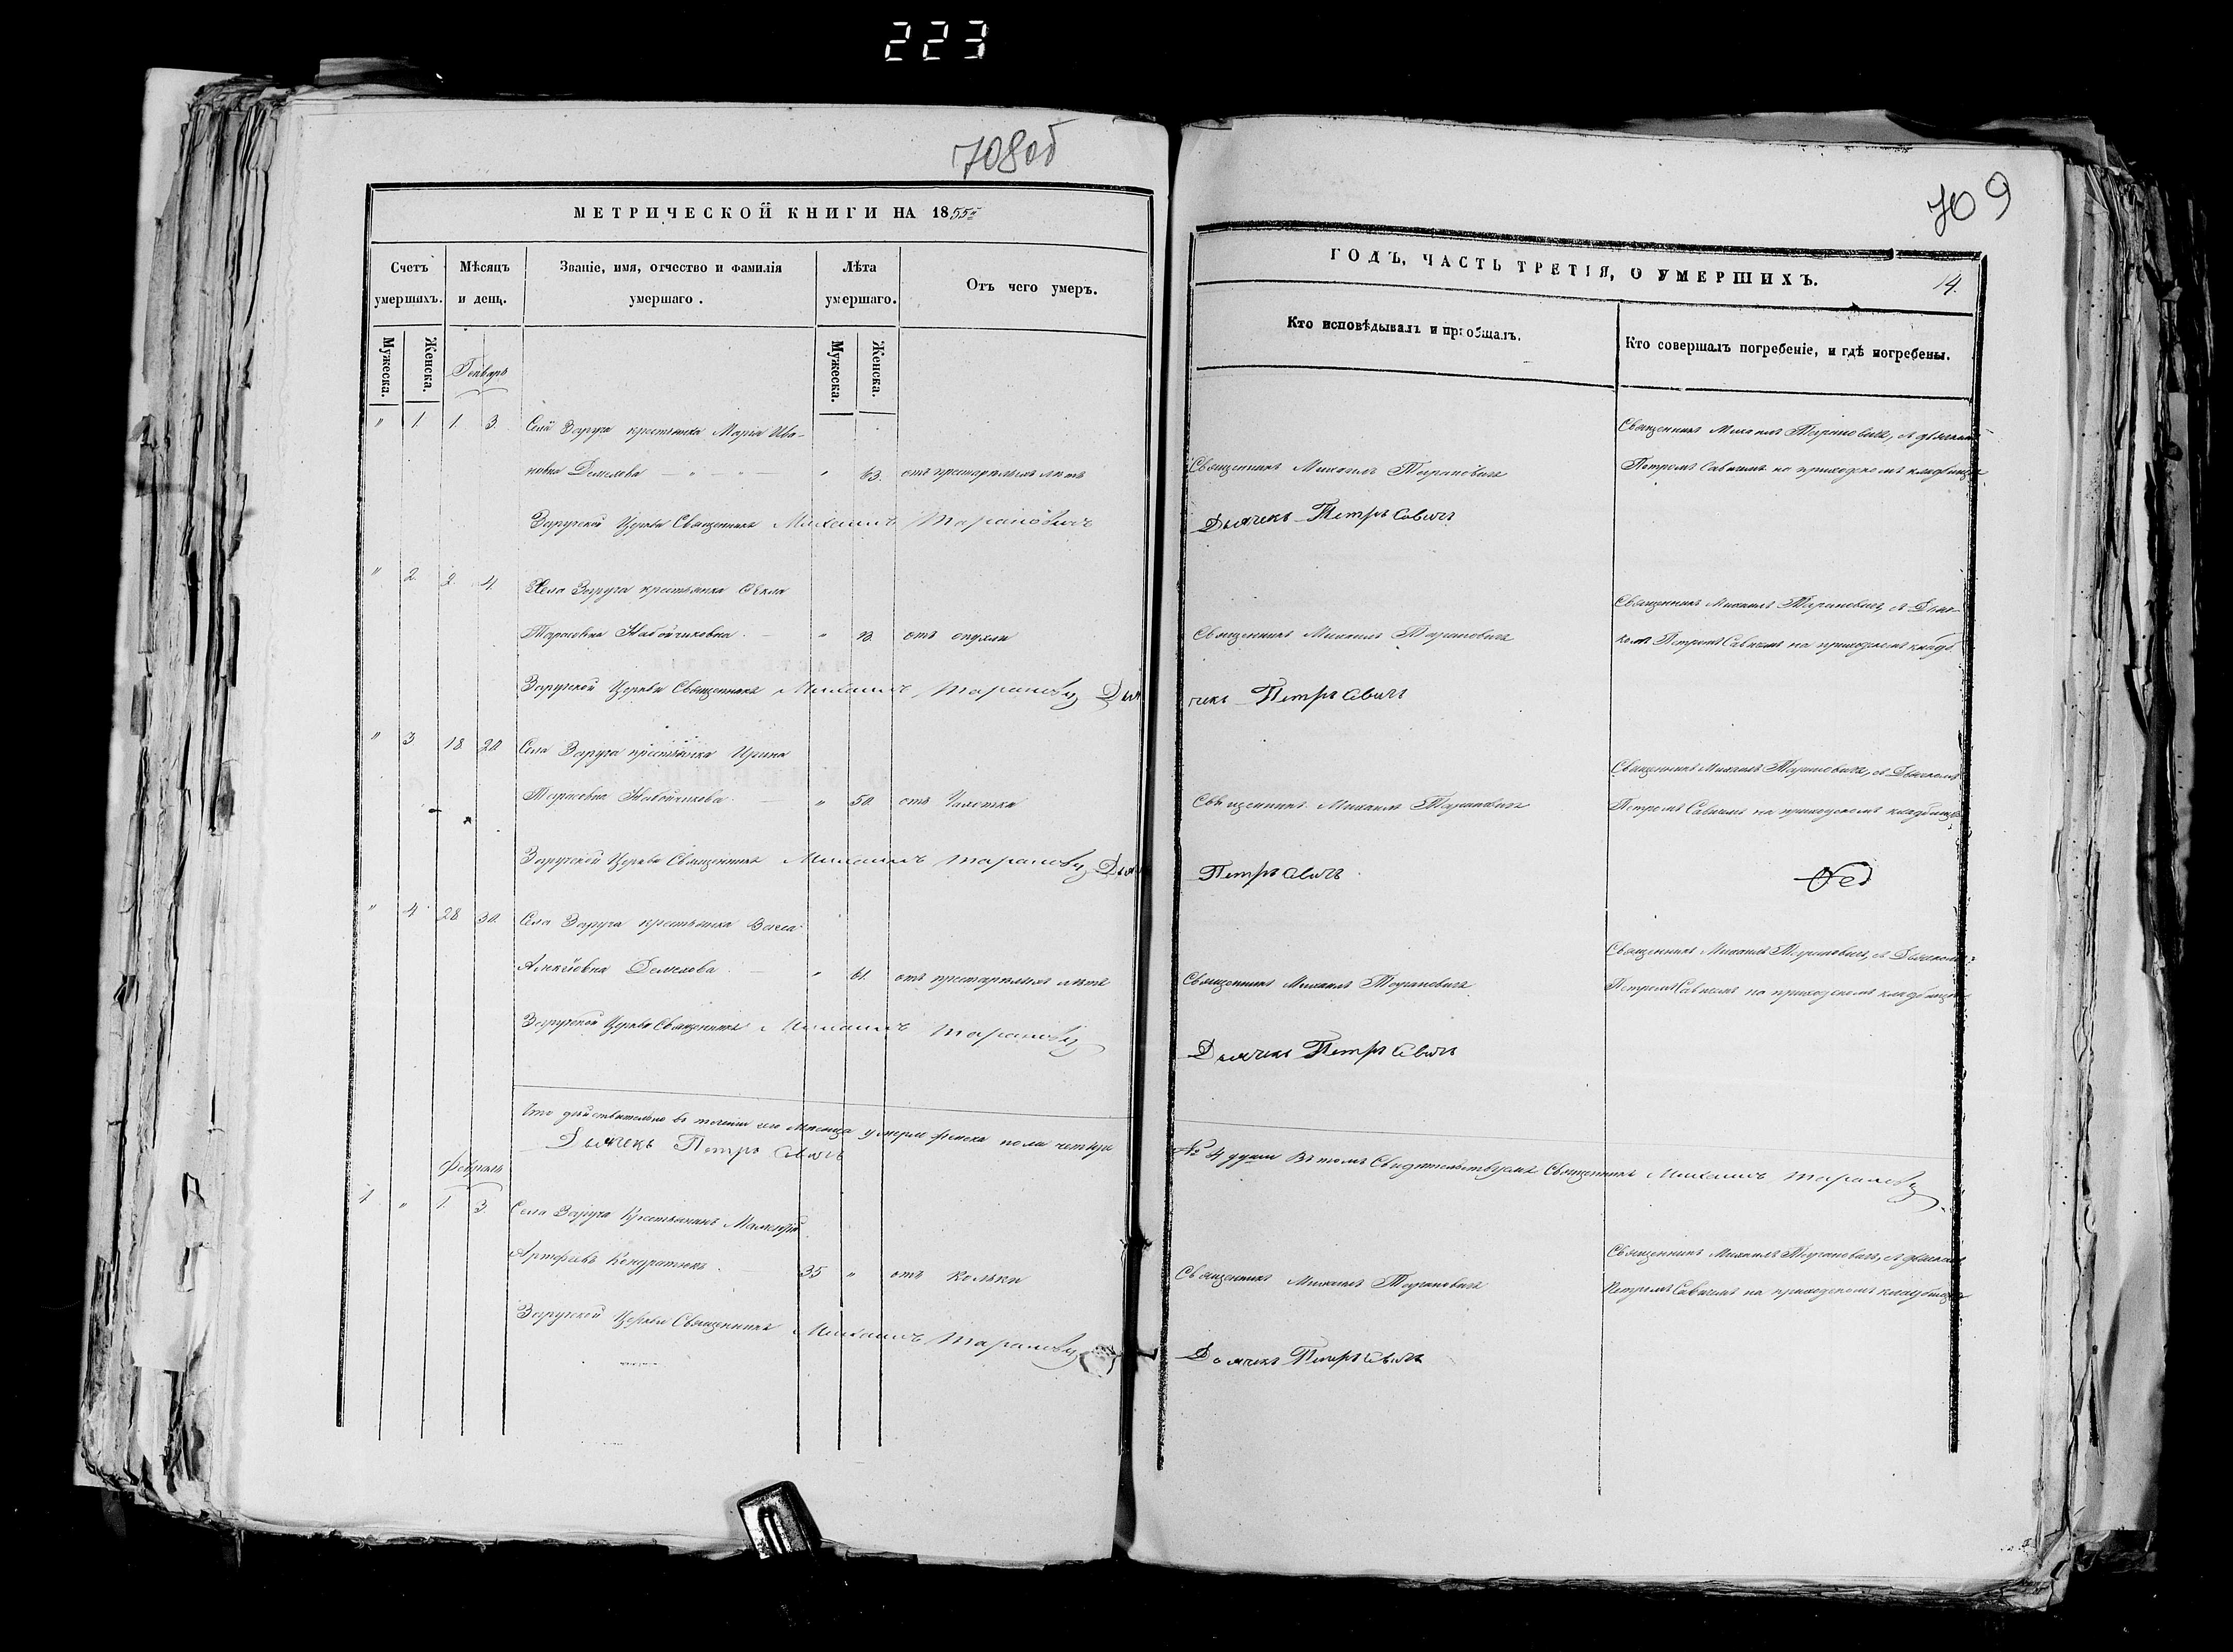 223
708об
709
МЕТРИЧЕСКОЙ КНИГИ НА 1855й
ГОДЪ, ЧАСТЬ ТРЕТІЯ, О УМЕРШИХЪ.
14.
Счетъ умершихъ.
Мѣсяцъ и день.
Званіе, имя, отчество и фамилія умершаго.
Лѣта умершаго.
Отъ чего умеръ.
Кто исповѣдывалъ и пріобщалъ.
Кто совершалъ погребеніе, и гдѣ погребены.
Мужеска.
Женска.
Мужеска.
Женска.
Генварь
" 1. 1. 3. Села Заруча крестьянка Марія Ива-
новна " 63. отъ престарѣлыхъ лѣтъ
Священникъ Михаилъ Тарановичъ
Священникъ Михаилъ Тарановичъ, съ дьячкомъ
Петромъ Савичемъ на приходскомъ кладбище
Заручской Церкви Священникъ Михаилъ Тарановичъ
Дьячекъ Петръ Савичъ
" 2. 2. 4. Села Заруча крестьянка Ѳекла
Тарасовна " отъ опухли
Священникъ Михаилъ Тарановичъ
Священникъ Михаилъ Тарановичъ, съ Дьяч-
комъ Петромъ Савичемъ на приходскомъ кладб
Заручской Церкви Священникъ Михаилъ Тарановичъ Дья
чекъ Петръ Савичъ
" 3 18 20 Села Заруча крестьянка Ирина
Тарасовна " 50. отъ Чахотки
Священникъ Михаилъ Тарановичъ
Священникъ Михаилъ Тарановичъ, съ Дьячкомъ
Петромъ Савичемъ на приходскомъ кладбище
Заручской Церкви Священникъ Михаилъ Тарановичъ Дьяч
Петръ Савичъ
" 4 28 30. Села Заруча крестьянка
Алексіовна " 61. отъ престарѣлыхъ лѣтъ
Священникъ Михаилъ Тарановичъ
Священникъ Михаилъ Тарановичъ, съ Дьячкомъ
Петромъ Савичемъ на приходскомъ кладбище
Заручской Церкви Священникъ Михаилъ Тарановичъ
Дьячекъ Петръ Савичъ
Что дѣйствительно въ теченіи сего Месяца умерло женска пола четыре
№ 4 души Въ томъ Свидетельствуемъ Священникъ Михаилъ Тарановичъ
Дьячекъ Петръ Савичъ
Февраль
1. " 1. 3. Села Заруча Крестьянинъ
Кондратюкъ 35 " отъ Кольки
Священникъ Михаилъ Тарановичъ
Священникъ Михаилъ Тарановичъ, съ дьячкомъ
Петромъ Савичемъ на приходскомъ кладбище
Заручской Церкви Священникъ Михаилъ Тарановичъ
Дьячекъ Петръ Савичъ